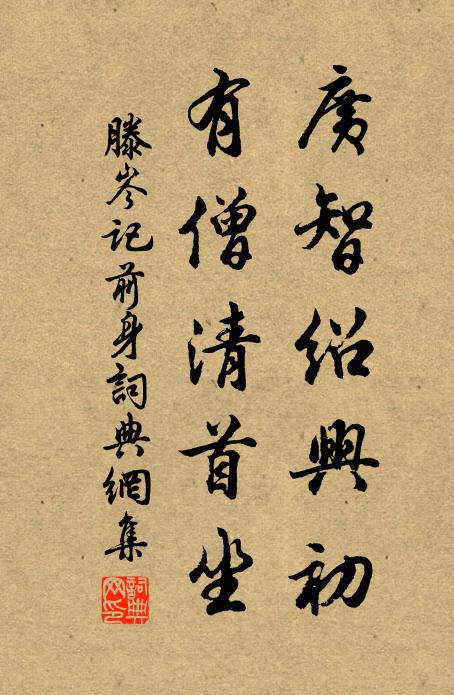 廣智紹興初
有僧清首坐
滕岑記前身詞典網集
詞典網印